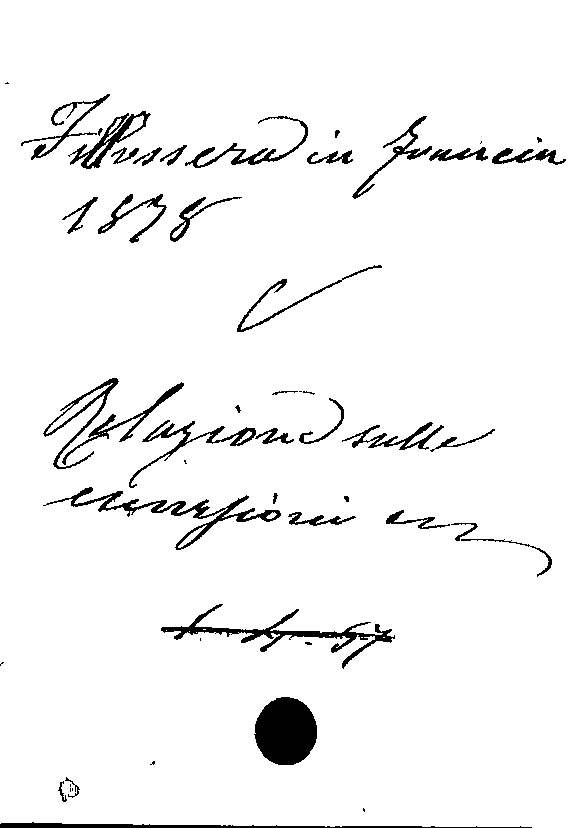 Fillossera in Francia
1878
Relazione sulle
escursioni